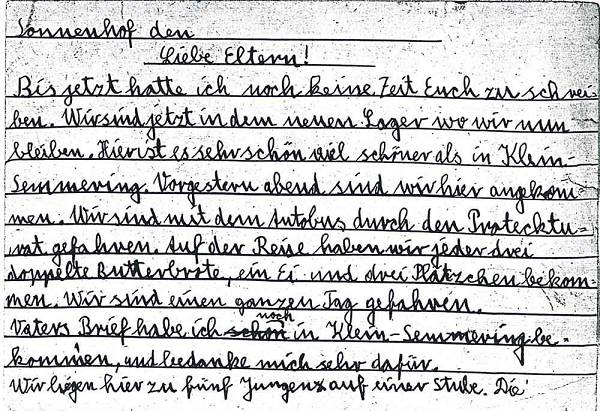 Sonnenhof den
Liebe Eltern!
Bis jetzt hatte ich noch keine Zeit Euch zu schrei-
ben. Wir sind jetzt in dem neuen Lager wo wir nun
bleiben. Hier ist es sehr schön viel schöner als in Klein-
Semmering. Vorgestern abend sind wir hier angekom-
men. Wir sind mit dem Autobus durch den Protecktu-
rat gefahren. Auf der Reise haben wir jeder drei
doppelte Butterbrote, ein Ei und drei Plätzchen bekom-
men. Wir sind einen ganzen Tag gefahren.
noch
Vaters Brief habe ich schon in Klein-Semmering be-
kommen, und bedanke mich sehr dafür.
Wir liegen hier zu fünf Jungens auf einer Stube. Die